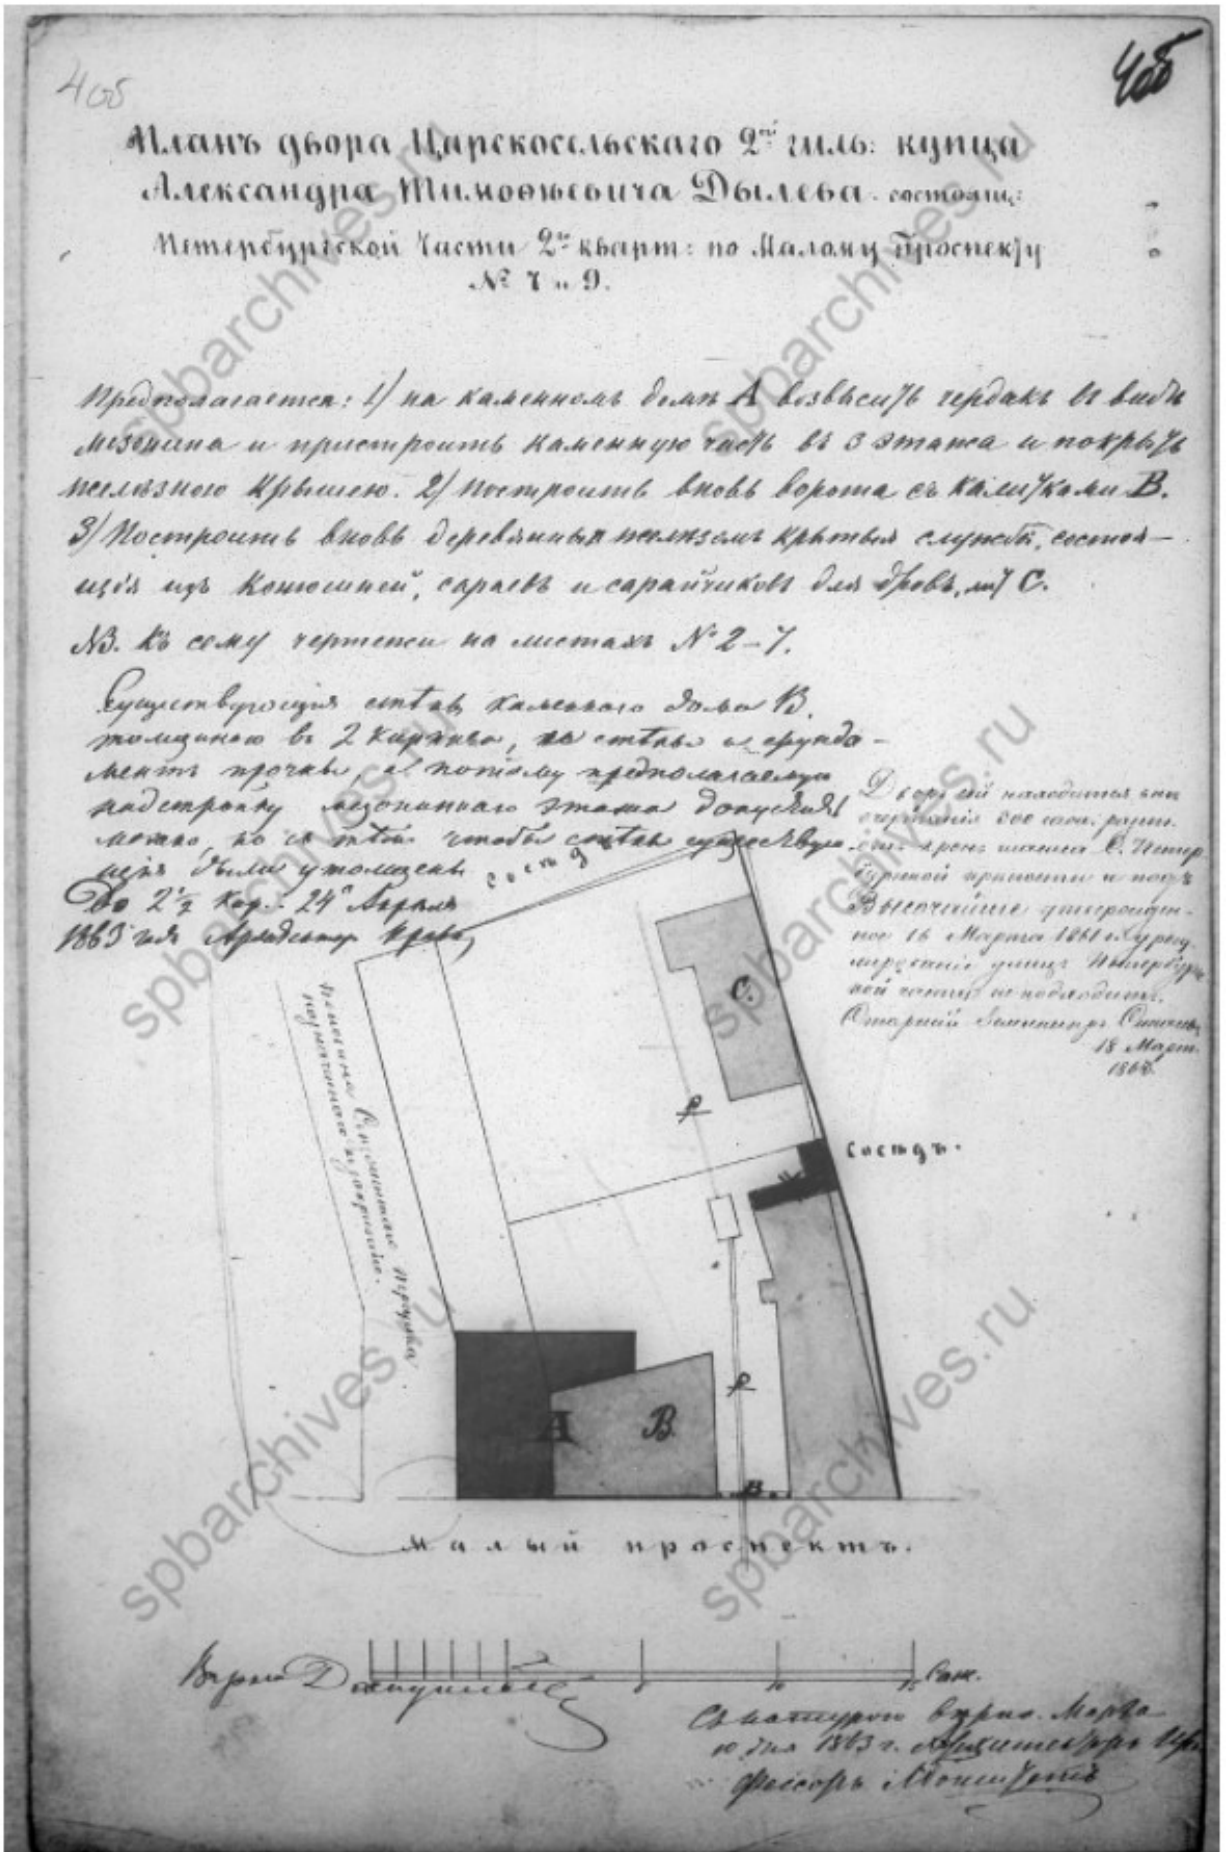 4об
4об
Планъ двора Царскосельскаго 2ой гиль: купца
Александра Тимоѳѣевича Дылева. состоящ:
Петербургской Части 2го кварт: по Малому Проспекту
№ 7 и 9.
Предполагается: 1/ на каменномъ домѣ А возвысить чердакъ въ видѣ
мезонина и пристроить каменную часть въ 3 этажа и покрыть
желѣзною крышею. 2/ Построить вновь ворота съ калитками В.
3/ Построить вновь деревянныя желѣзомъ крытыя службы, состоя-
щія изъ конюшней, сараевъ и сарайчиковъ для дровъ, лит С.
NB. Къ сему чертежи на листахъ № 2-7.
Существующія стѣны каменнаго дома В.
толщиною въ 2 кирпича, стѣны и фунда-
ментъ прочны, а потому предполагаемую
надстройку мезониннаго этажа допустить
можно, но съ тѣмъ чтобы стѣны существую
щія были утолщены
До 2½ кир. 24го Апреля
1863 года
Дворъ сей находится внѣ
300 саж.
С. Петер
бургской крѣпости и подъ
Высочайше утвержден-
ное 16 Марта 1861 г. урегу-
лированіе улицъ Петербург
ской части не подходитъ.
Старшій Землемѣръ
18 Март.
186
сосѣдъ
С.
сосѣдъ.
А
В
В
Малый проспектъ.
5
10
15
Саж.
Съ натурою вѣрно. Марта
10 дня 1863 г. Архитекторъ Про
фессоръ
spbarchives.ru
spbarchives.ru
spbarchives.ru
spbarchives.ru
spbarchives.ru
spbarchives.ru